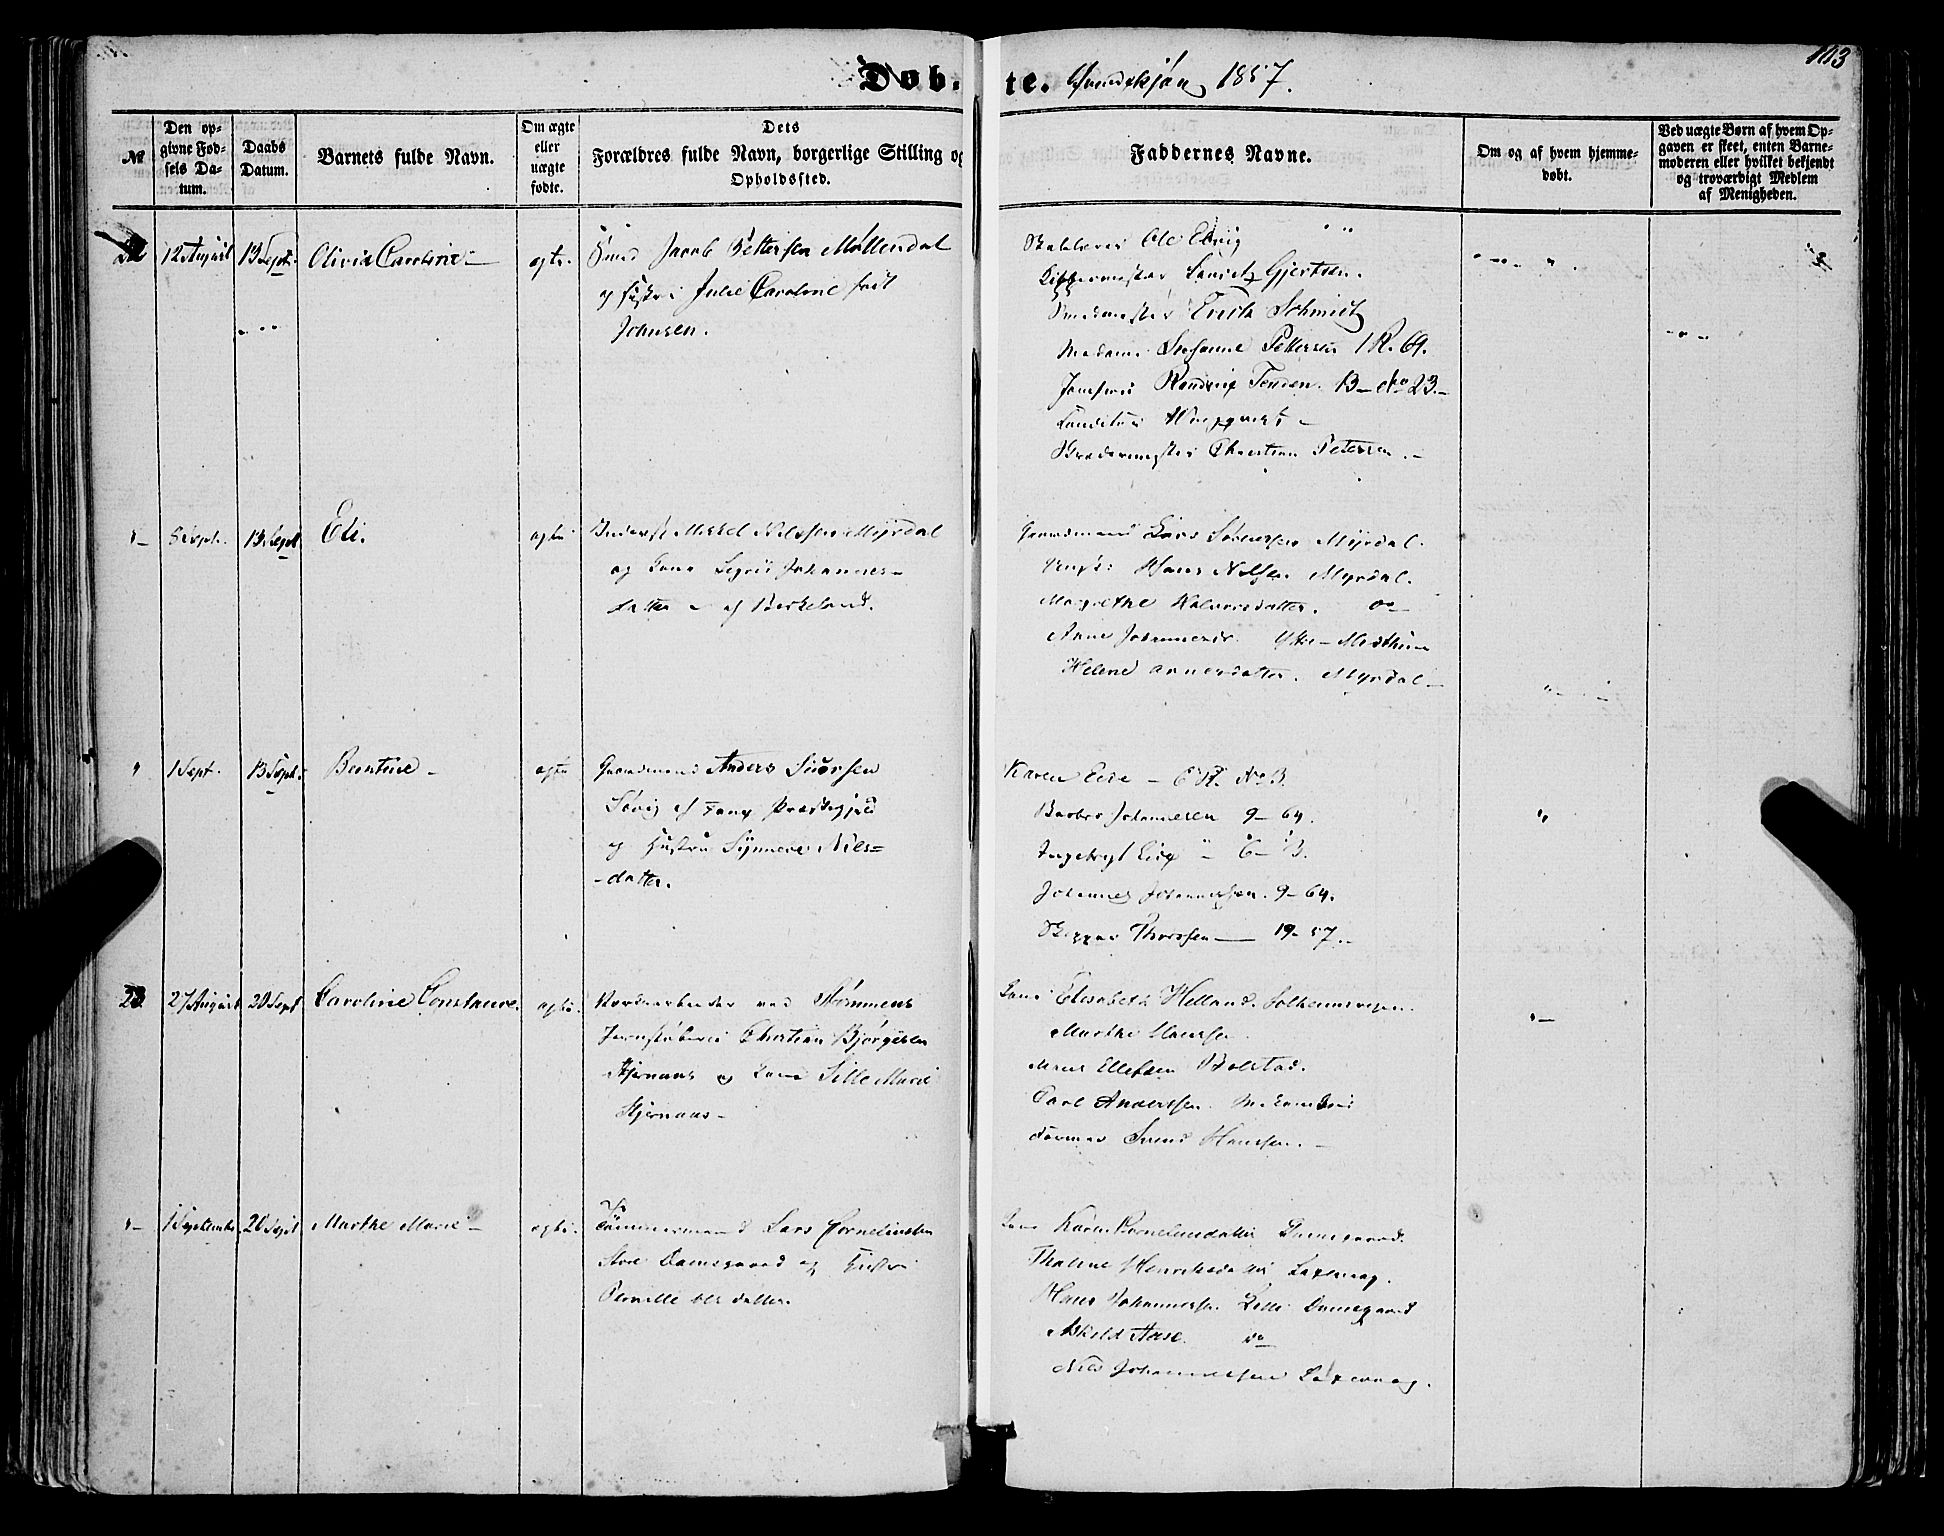 113
Døb. te. Qvindekjøn 1857.
№
Den op-
givne Fød-
sels Da-
tum.
Daabs
Datum.
Barnets fulde Navn.
Om ægte
eller
uægte
fødte.
Dets
Forældres fulde Navn, borgerlige Stilling og
Opholdssted.
Faddernes Navne.
Om og af hvem hjemme-
døbt.
Ved uægte Børn af hvem Op-
gaven er skeet, enten Barne-
moderen eller hvilket bekjendt
og troværdigt Medlem
af Menigheden.
12 August 13 Sept. Olivia Caroline - ægte. Smed Jacob Pettersen Møllendal
og Hustru Julie Caroline født
Johnsen.
Ole Elvig
Lauritz Gjertsen.
Smedmester Erich Schmidt
Madame Susanne Pettersen 1 R. 69.
Jomfrue Tenden. 13 - do 23.-
Christian Petersen.-
" - 5 Sept. 13 Sept. Eli. ægte Inderst Mikkel Nilssen Myrdal
og Kone Sigrid Johannes-
datter - af Birkeland.
Gaardmand Lars Myrdal.
Hans Nilsen Myrdal.
Margrethe Halvorsdatter. do
Anne Johannesdr. Ytre-
Helene Arnesdatter. Myrdal -
" 1 Sept. 13 Sept. Bentine - ægte Gaardmand Anders Siversen
Søvig af Fane Præstegjeld
og Hustru Synneve Nils=
-datter.
Karen Eide - 6 R. No 3.
Barbro Johannesen 9 - 64.
Ingebrigt Eide " - 6 - 3.
Johannes Johannessen. 9 - 64.
Skipper Thorssen - 19 - 57.-
27 August 20 Sept. Caroline Constance. ægte. ved Strømmens
Jernstøberi Christian Bjørgesen
Stjernaas og Kone Sille Marie
Stjernaas -
Kone Elisabeth Helland. Solheimsvigen.
Marthe Hanssen.
Mons Ellefsen Bolstad.
Carl Anderssen.
Former Svend Hanssen. -
" - 1 September 20 Sept. Marthe Marie - ægte. Tømmermand Lars Corneliussen
Store Damsgaard og Hustru
Pernille Olsdatter.
Kone Karen Corneliusdatter Damsgaard.
Thaline Henriksdatter Laxevaag.
Hans Johannessen Lille Damsgaard
Askild Aase. do
Nils Johannessen Laxevaag.